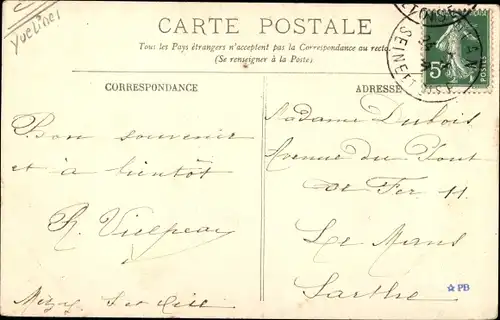 Yvelines
CARTE POSTALE
Tous les Pays étrangers n'acceptent pas la Correspondance au recto.
(Se renseigner à la Poste)
CORRESPONDANCE
ADRESSE
5c
SEINE
Bon souvenir
et à bientôt
Madame Dubois
Avenue du Pont
de Fer 11
Le Mans
Sarthe
PB